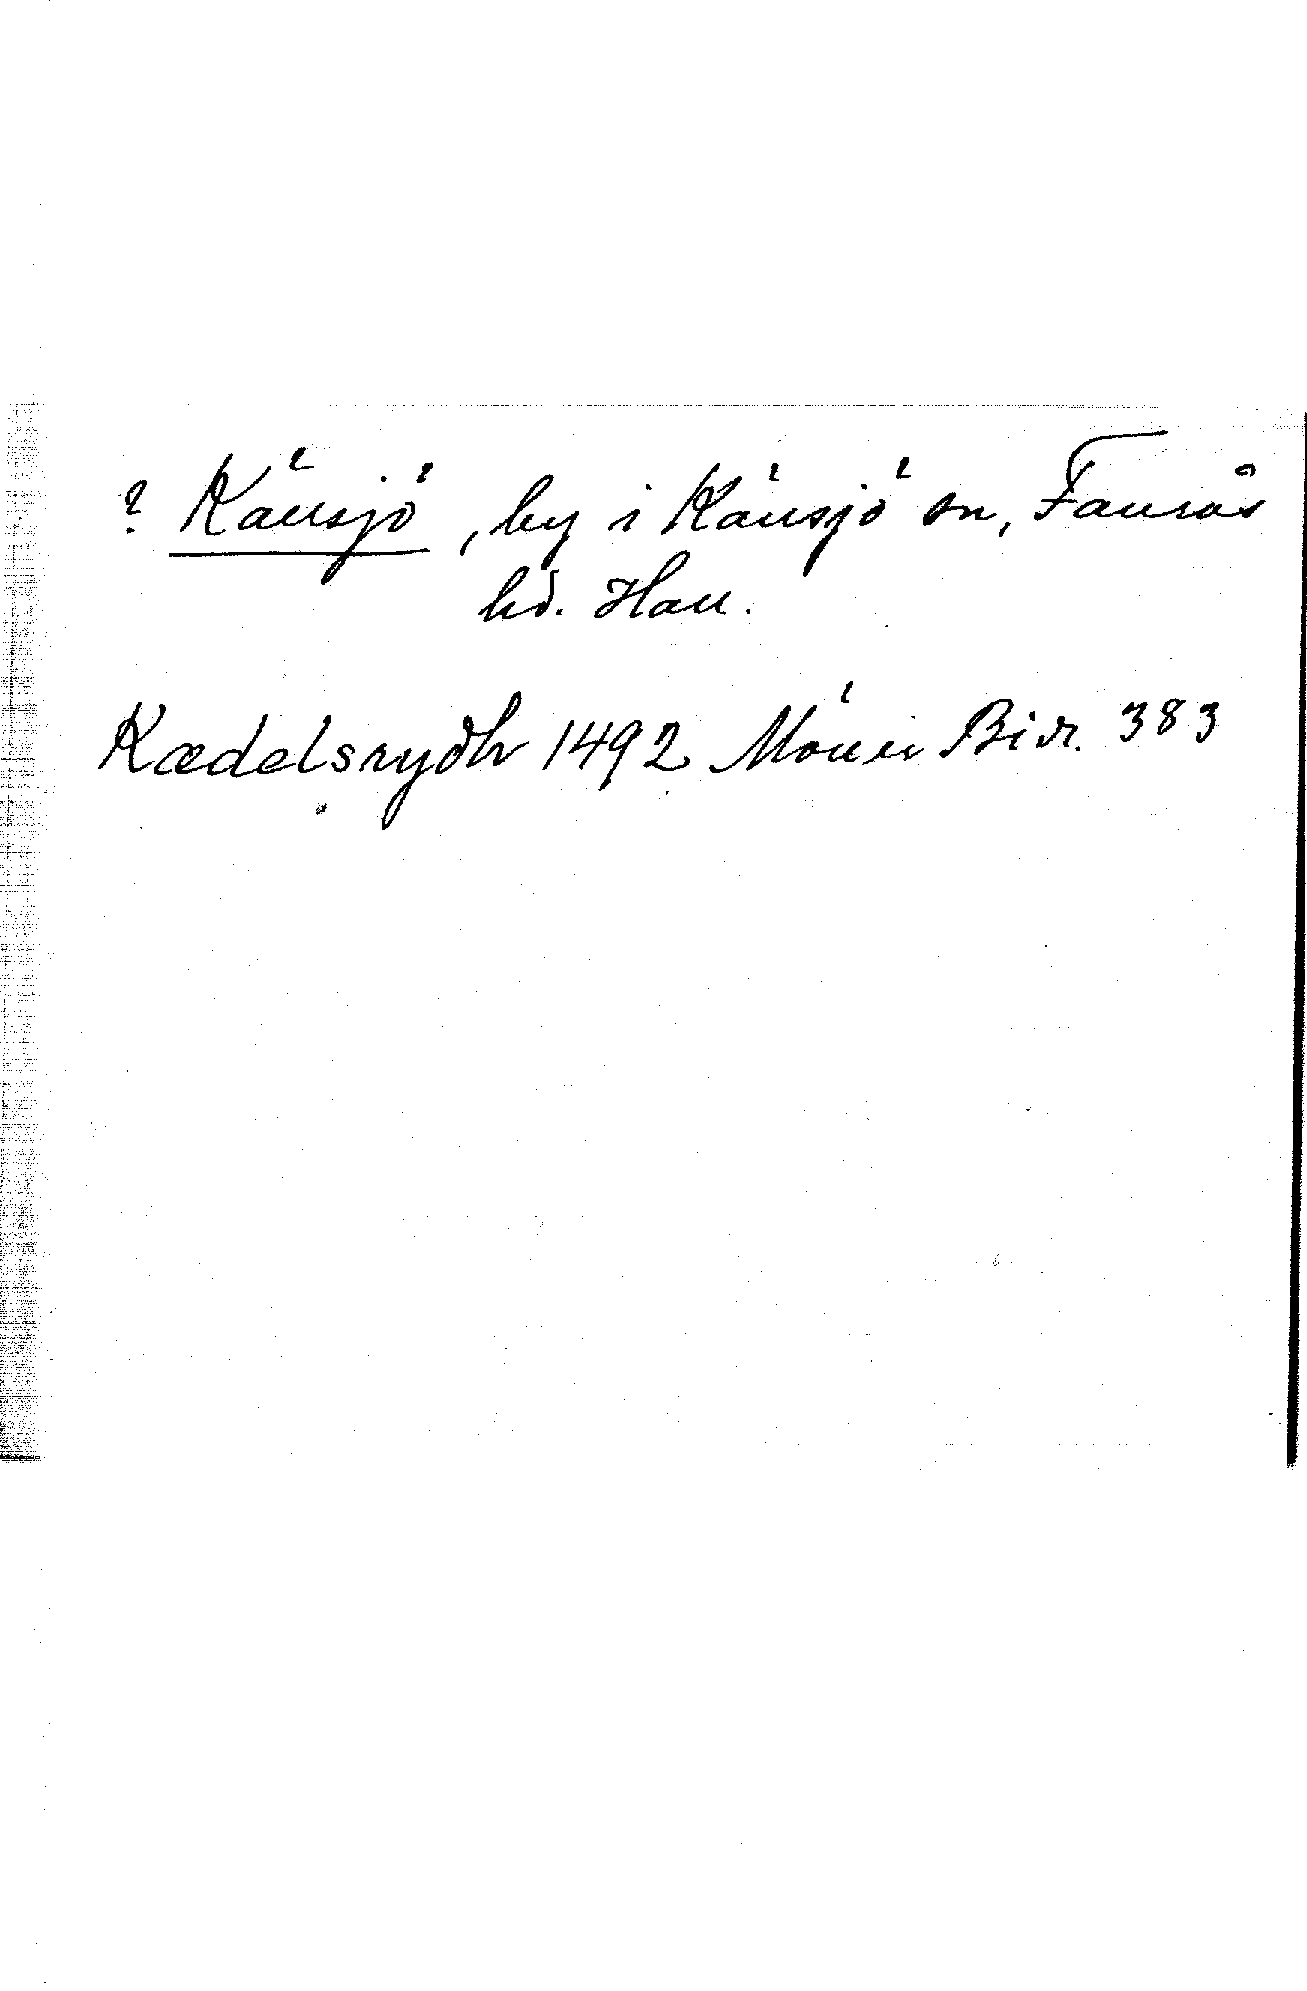 ? Känsjö, by i Känsjö sn, Faurås
hd. Hall.
Kædelsrydh 1492 Mönir Bidr. 383